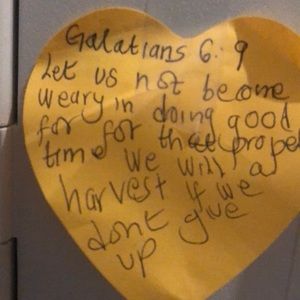 Galatians 6:9
Let us not become
weary in doing good
for for that prope
time we will a
harvest if we
dont give
up